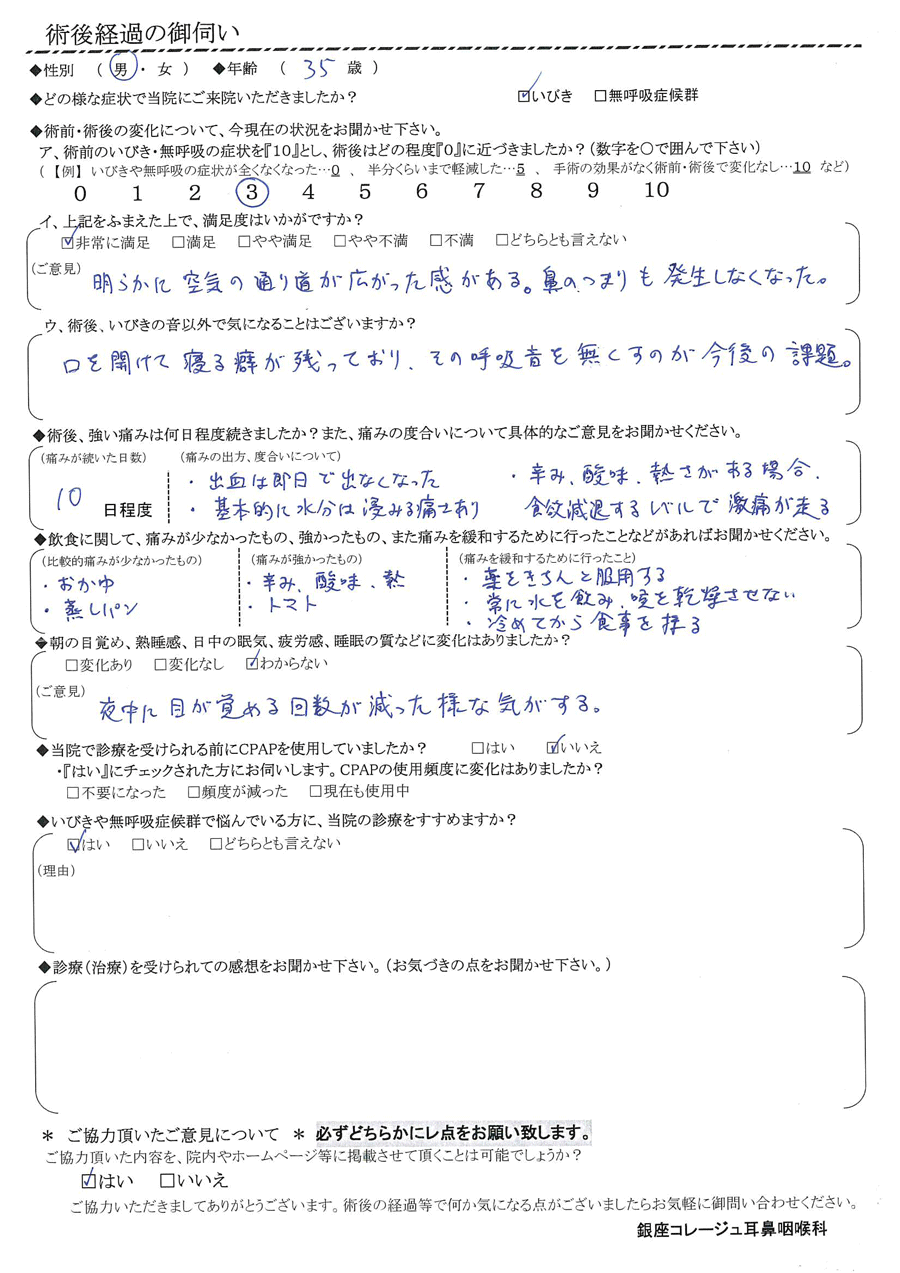 術後経過の御伺い
◆性別 ( 男 ・ 女 ) ◆年齢 ( 35 歳 )
◆どの様な症状で当院にご来院いただきましたか? ☑いびき □無呼吸症候群
◆術前・術後の変化について、今現在の状況をお聞かせ下さい。
ア、術前のいびき・無呼吸の症状を『10』とし、術後はどの程度『0』に近づきましたか?(数字を○で囲んで下さい)
(【例】 いびきや無呼吸の症状が全くなくなった…0 、 半分くらいまで軽減した…5 、 手術の効果がなく術前・術後で変化なし…10 など)
0 1 2 3 4 5 6 7 8 9 10
イ、上記をふまえた上で、満足度はいかがですか?
☑非常に満足 □満足 □やや満足 □やや不満 □不満 □どちらとも言えない
(ご意見)
明らかに空気の通り道が広がった感がある。鼻のつまりも発生しなくなった。
ウ、術後、いびきの音以外で気になることはございますか?
口を開けて寝る癖が残っており、その呼吸音を無くすのが今後の課題。
◆術後、強い痛みは何日程度続きましたか?また、痛みの度合いについて具体的なご意見をお聞かせください。
(痛みが続いた日数) (痛みの出方、度合いについて)
・出血は即日で出なくなった ・辛み、酸味、熱さがある場合、
10 日程度 ・基本的に水分は浸みる痛さあり 食欲減退するレベルで激痛が走る
◆飲食に関して、痛みが少なかったもの、強かったもの、また痛みを緩和するために行ったことなどがあればお聞かせください。
(比較的痛みが少なかったもの) (痛みが強かったもの) (痛みを緩和するために行ったこと)
・おかゆ ・辛み、酸味、熱 ・薬をきちんと服用する
・蒸しパン ・トマト ・常に水を飲み、喉を乾燥させない
・冷めてから食事を採る
◆朝の目覚め、熟睡感、日中の眠気、疲労感、睡眠の質などに変化はありましたか?
□変化あり □変化なし ☑わからない
(ご意見)
夜中に目が覚める回数が減った様な気がする。
◆当院で診療を受けられる前にCPAPを使用していましたか? □はい ☑いいえ
・『はい』にチェックされた方にお伺いします。CPAPの使用頻度に変化はありましたか?
□不要になった □頻度が減った □現在も使用中
◆いびきや無呼吸症候群で悩んでいる方に、当院の診療をすすめますか?
☑はい □いいえ □どちらとも言えない
(理由)
◆診療(治療)を受けられての感想をお聞かせ下さい。(お気づきの点をお聞かせ下さい。)
＊ ご協力頂いたご意見について ＊ 必ずどちらかにレ点をお願い致します。
ご協力頂いた内容を、院内やホームページ等に掲載させて頂くことは可能でしょうか?
☑はい □いいえ
ご協力いただきましてありがとうございます。術後の経過等で何か気になる点がございましたらお気軽に御問い合わせください。
銀座コレージュ耳鼻咽喉科